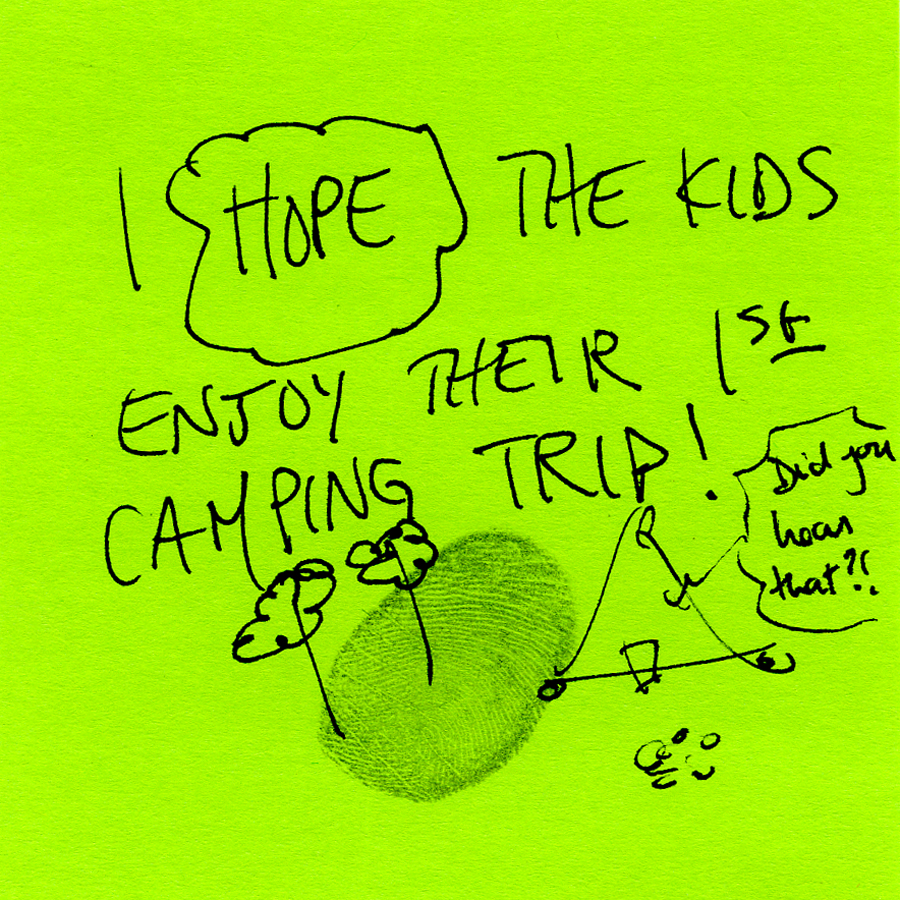 I HOPE THE KIDS
ENJOY THEIR 1st
CAMPING TRIP!
Did you
hear
that?!